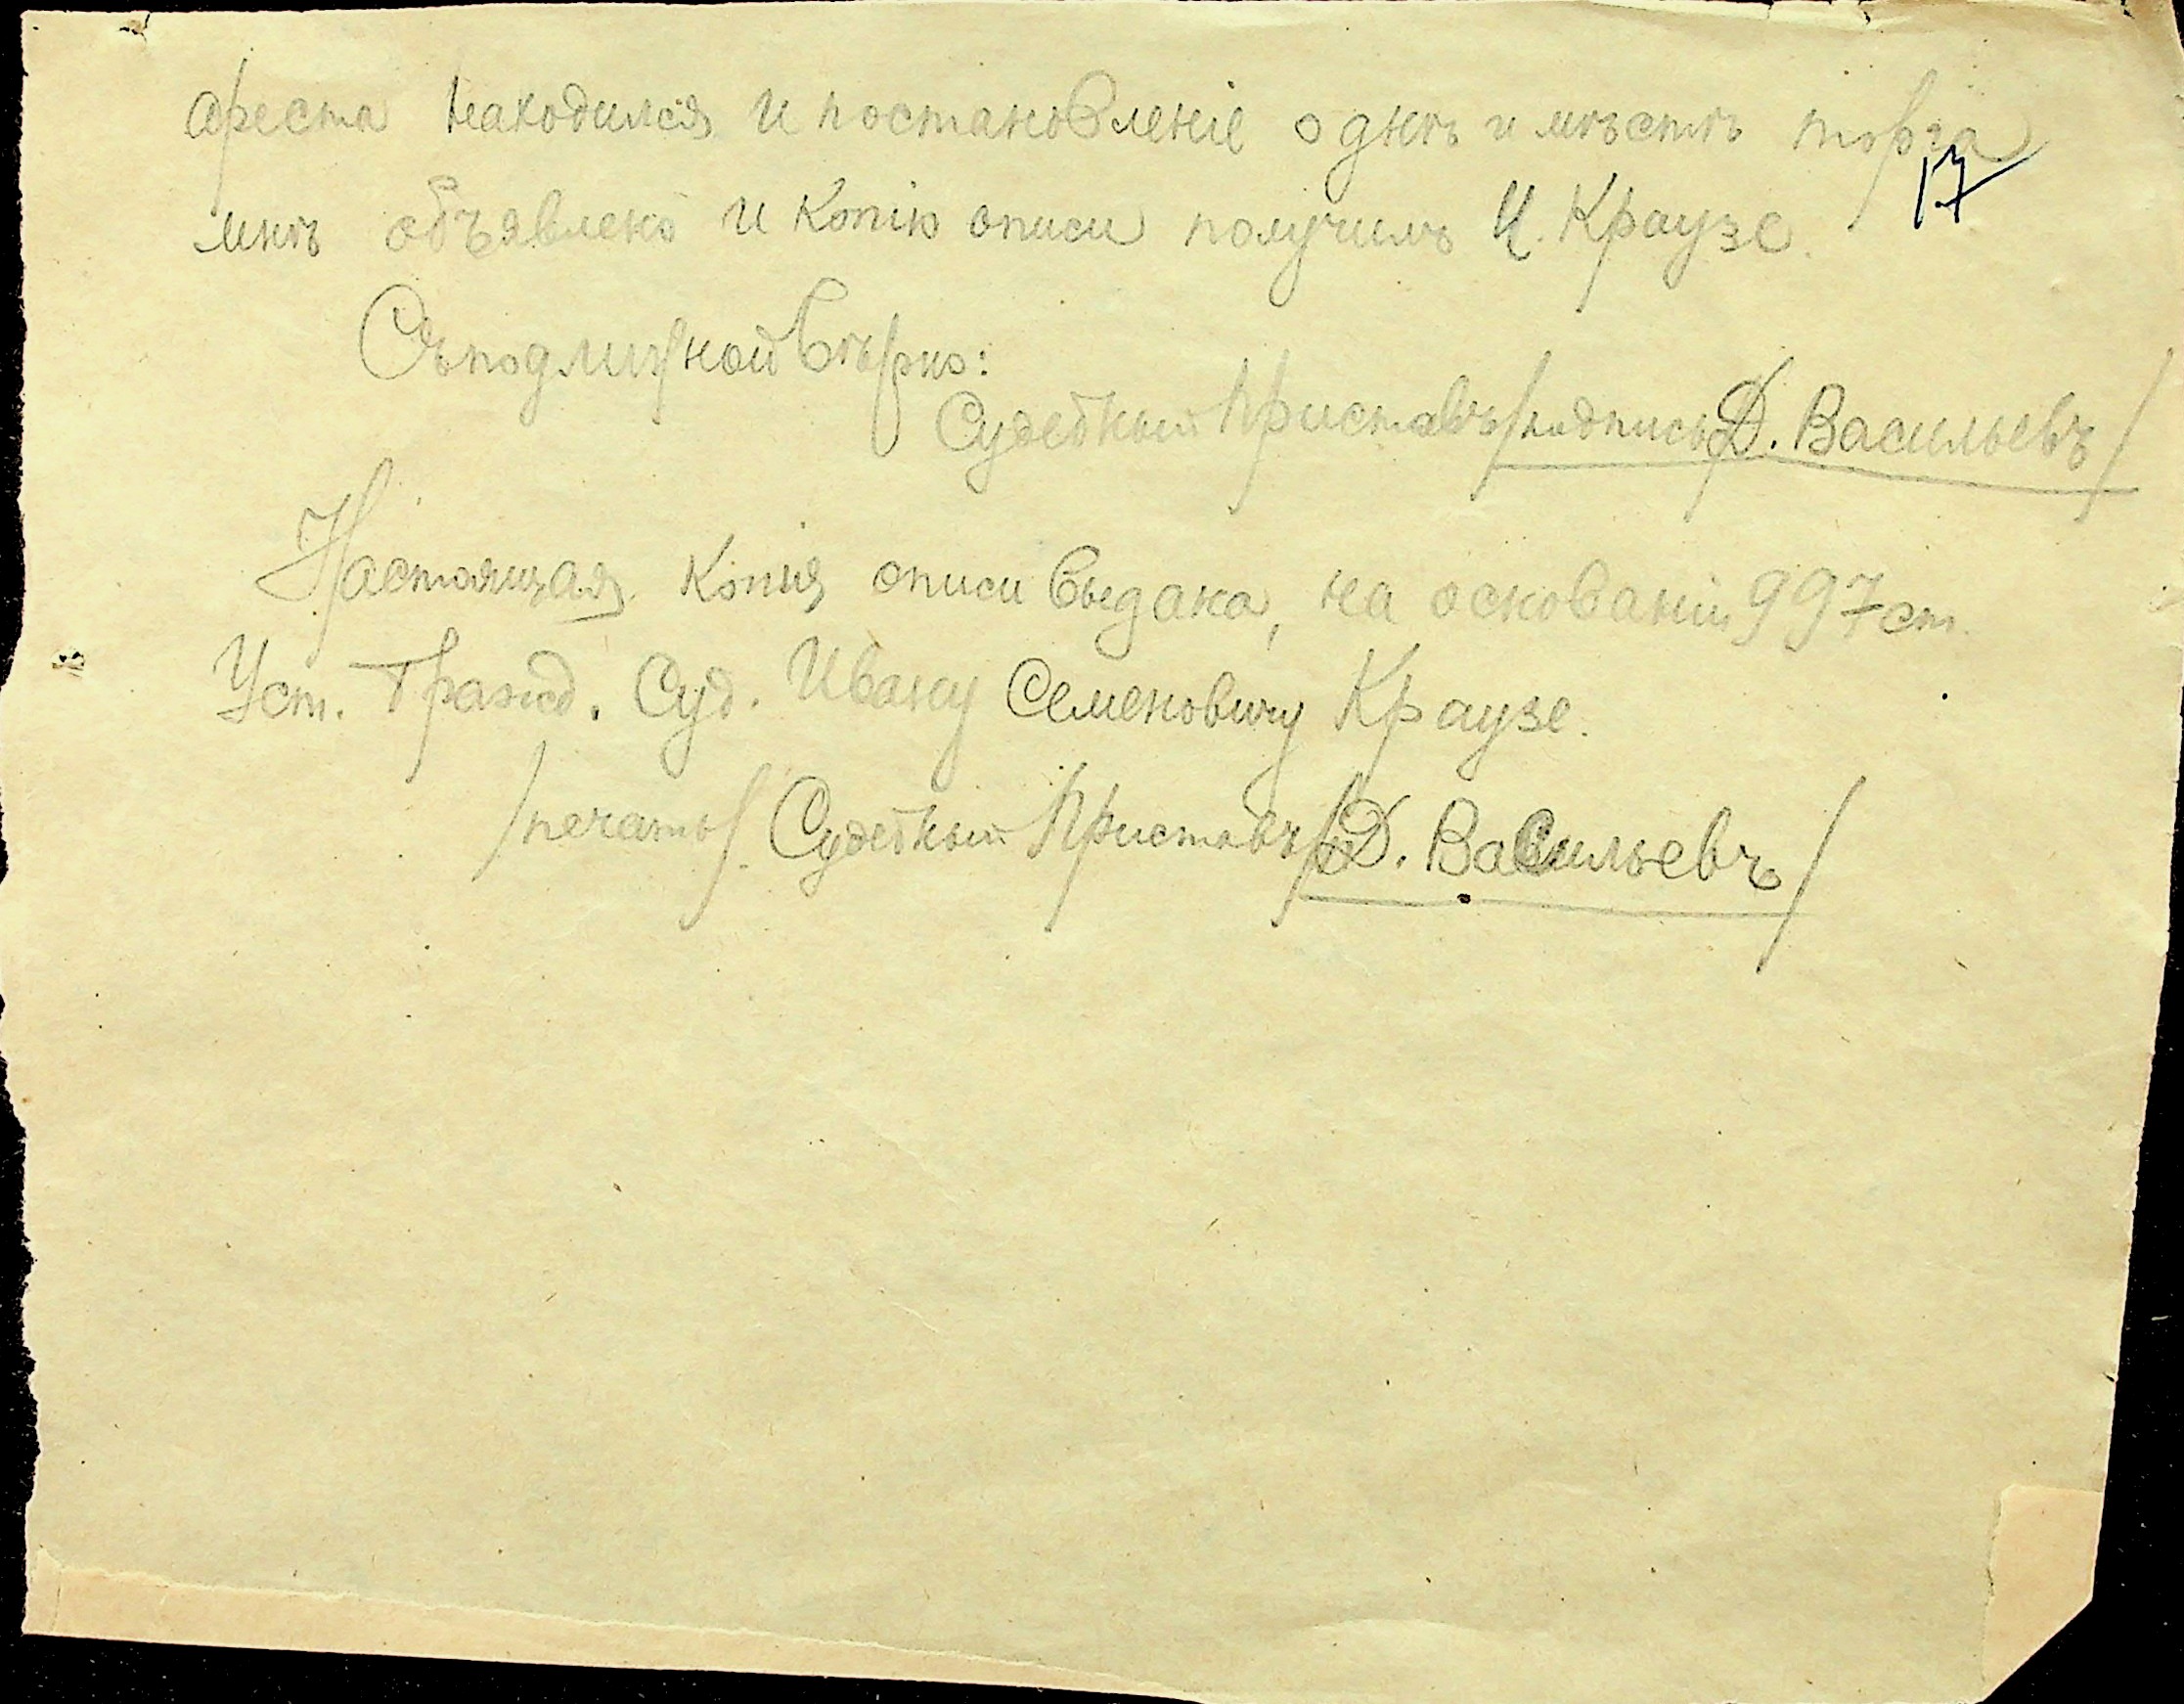 ареста находился и постановленіе о днѣ и мѣстѣ торга
17
мнѣ объявлено и копію описи получилъ И. Краузе.
Съ подлинной вѣрно:
Судебный Приставъ /подпись Д. Васильевъ/
Настоящая копия описи выдана, на основаніи 997 ст.
Уст. Гражд. Суд. Ивану Семеновичу Краузе.
/печать/. Судебный Приставъ /Д. Васильевъ/